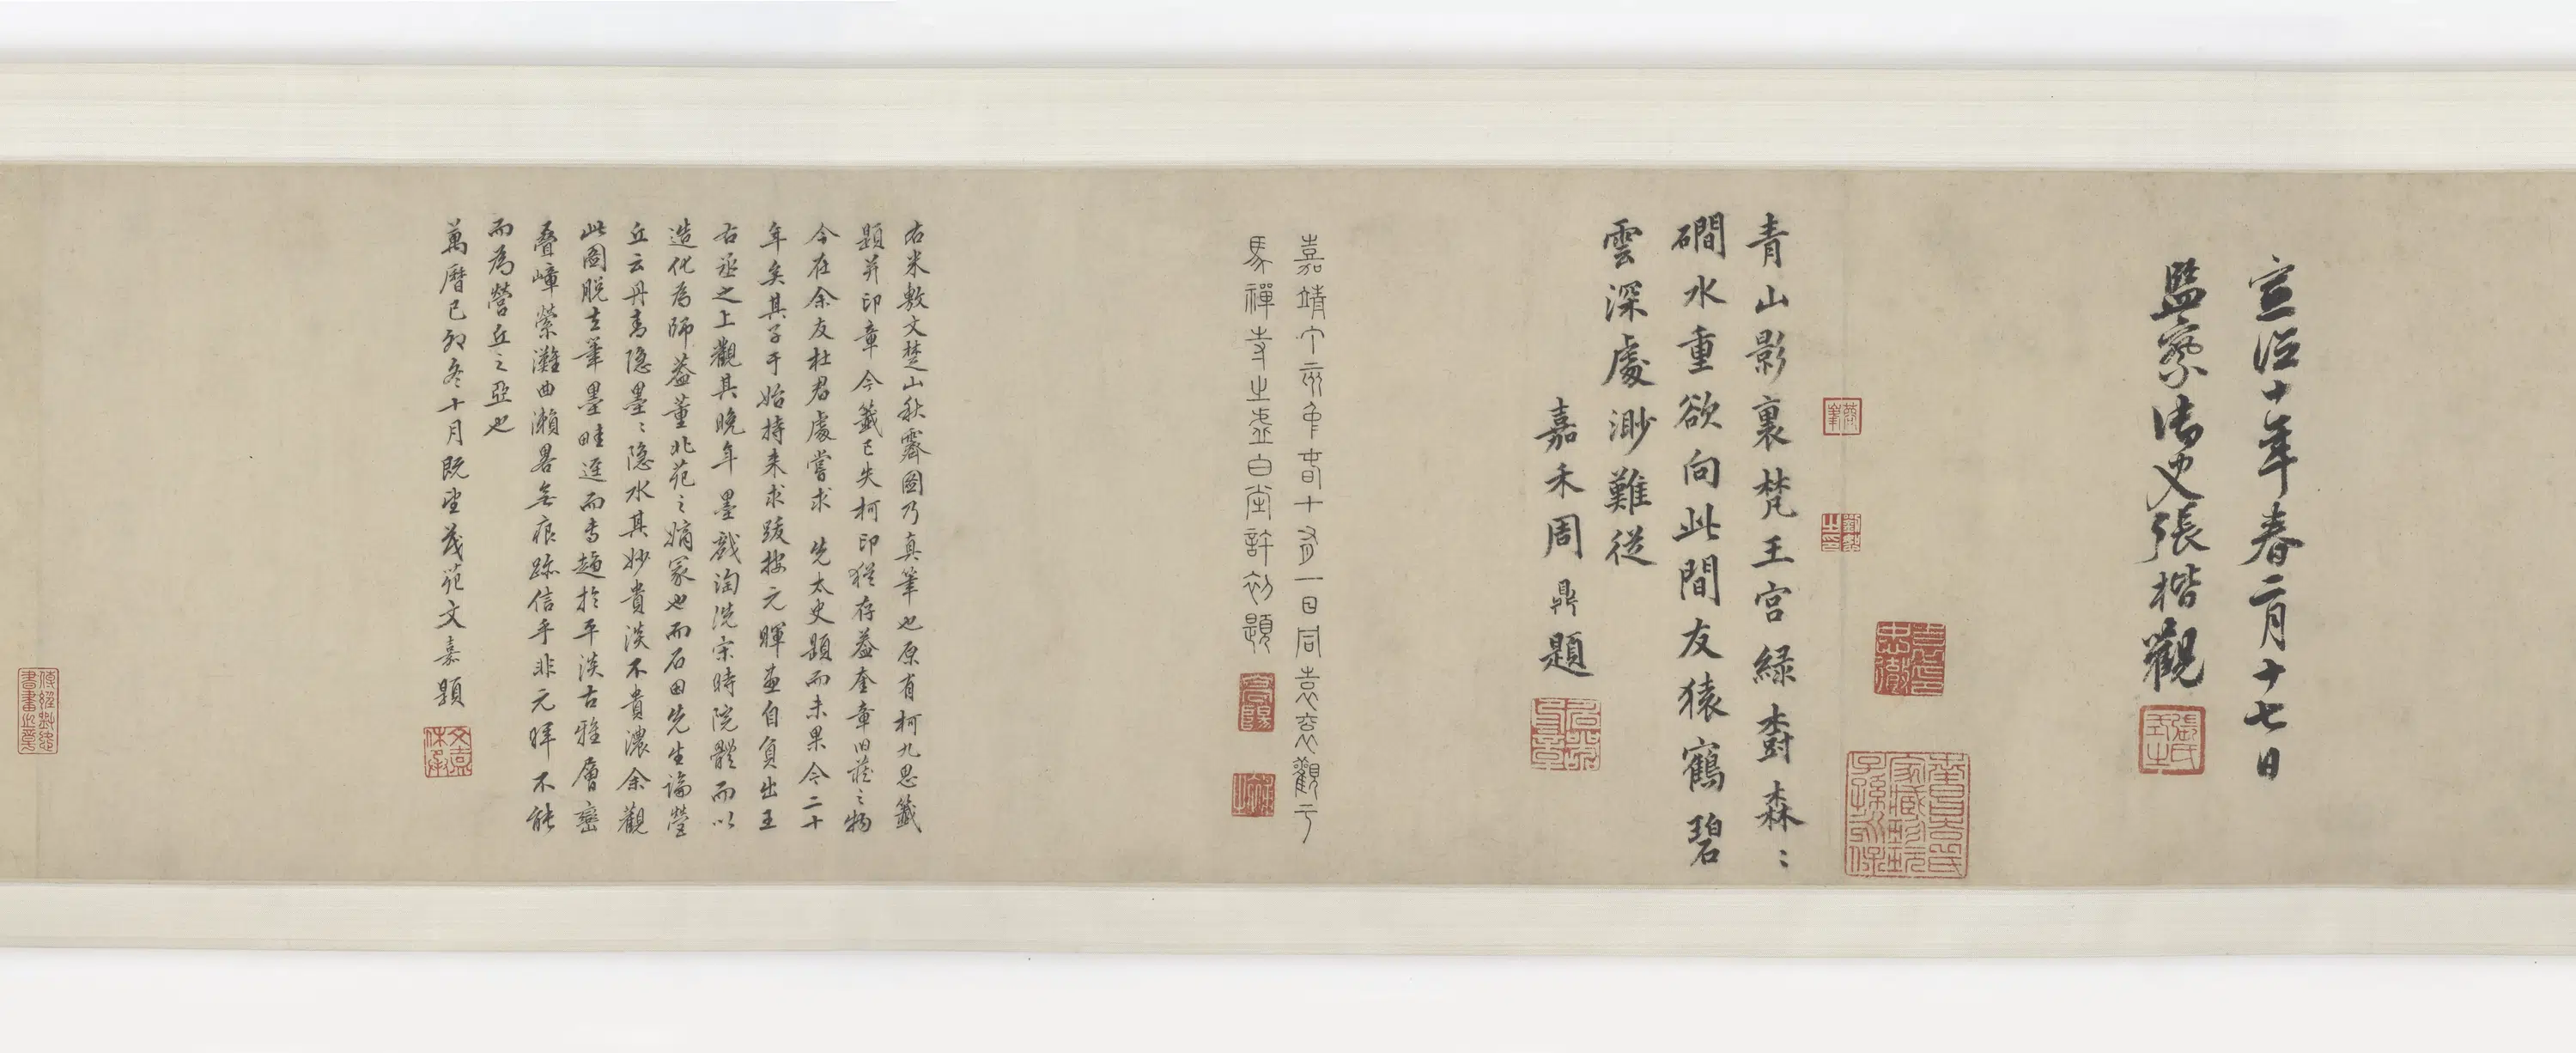 宣德十年春二月十七日
監察御史張楷觀
張氏
青山影裏梵王宮綠樹森〻
磵水重欲向此間友猿鶴碧
雲深處渺難從
嘉禾周鼎題
嘉靖 春十又一日同袁袠觀于
馬禪寺之虛白堂許初題
高陽
右米敷文楚山秋霽圖乃真筆也原有柯九思籤
題并印章今籤已失柯印猶存蓋奎章舊藏之物
今在余友杜君處嘗求先太史題而未果今二十
年矣其子于始持來求跋按元暉畫自負出王
右丞之上觀其晚年墨戲淘洗宋時院體而以
造化為師蓋董北苑之嫡冢也而石田先生論營
丘云丹青隱墨〻隱水其妙貴淡不貴濃余觀
此圖脫去筆墨畦逕而專趨於平淡古雅層巒
疊嶂縈灘曲瀨畧無痕跡信乎非元暉不能
而為營丘之亞也
萬曆己卯冬十月既望茂苑文嘉題
文嘉休承